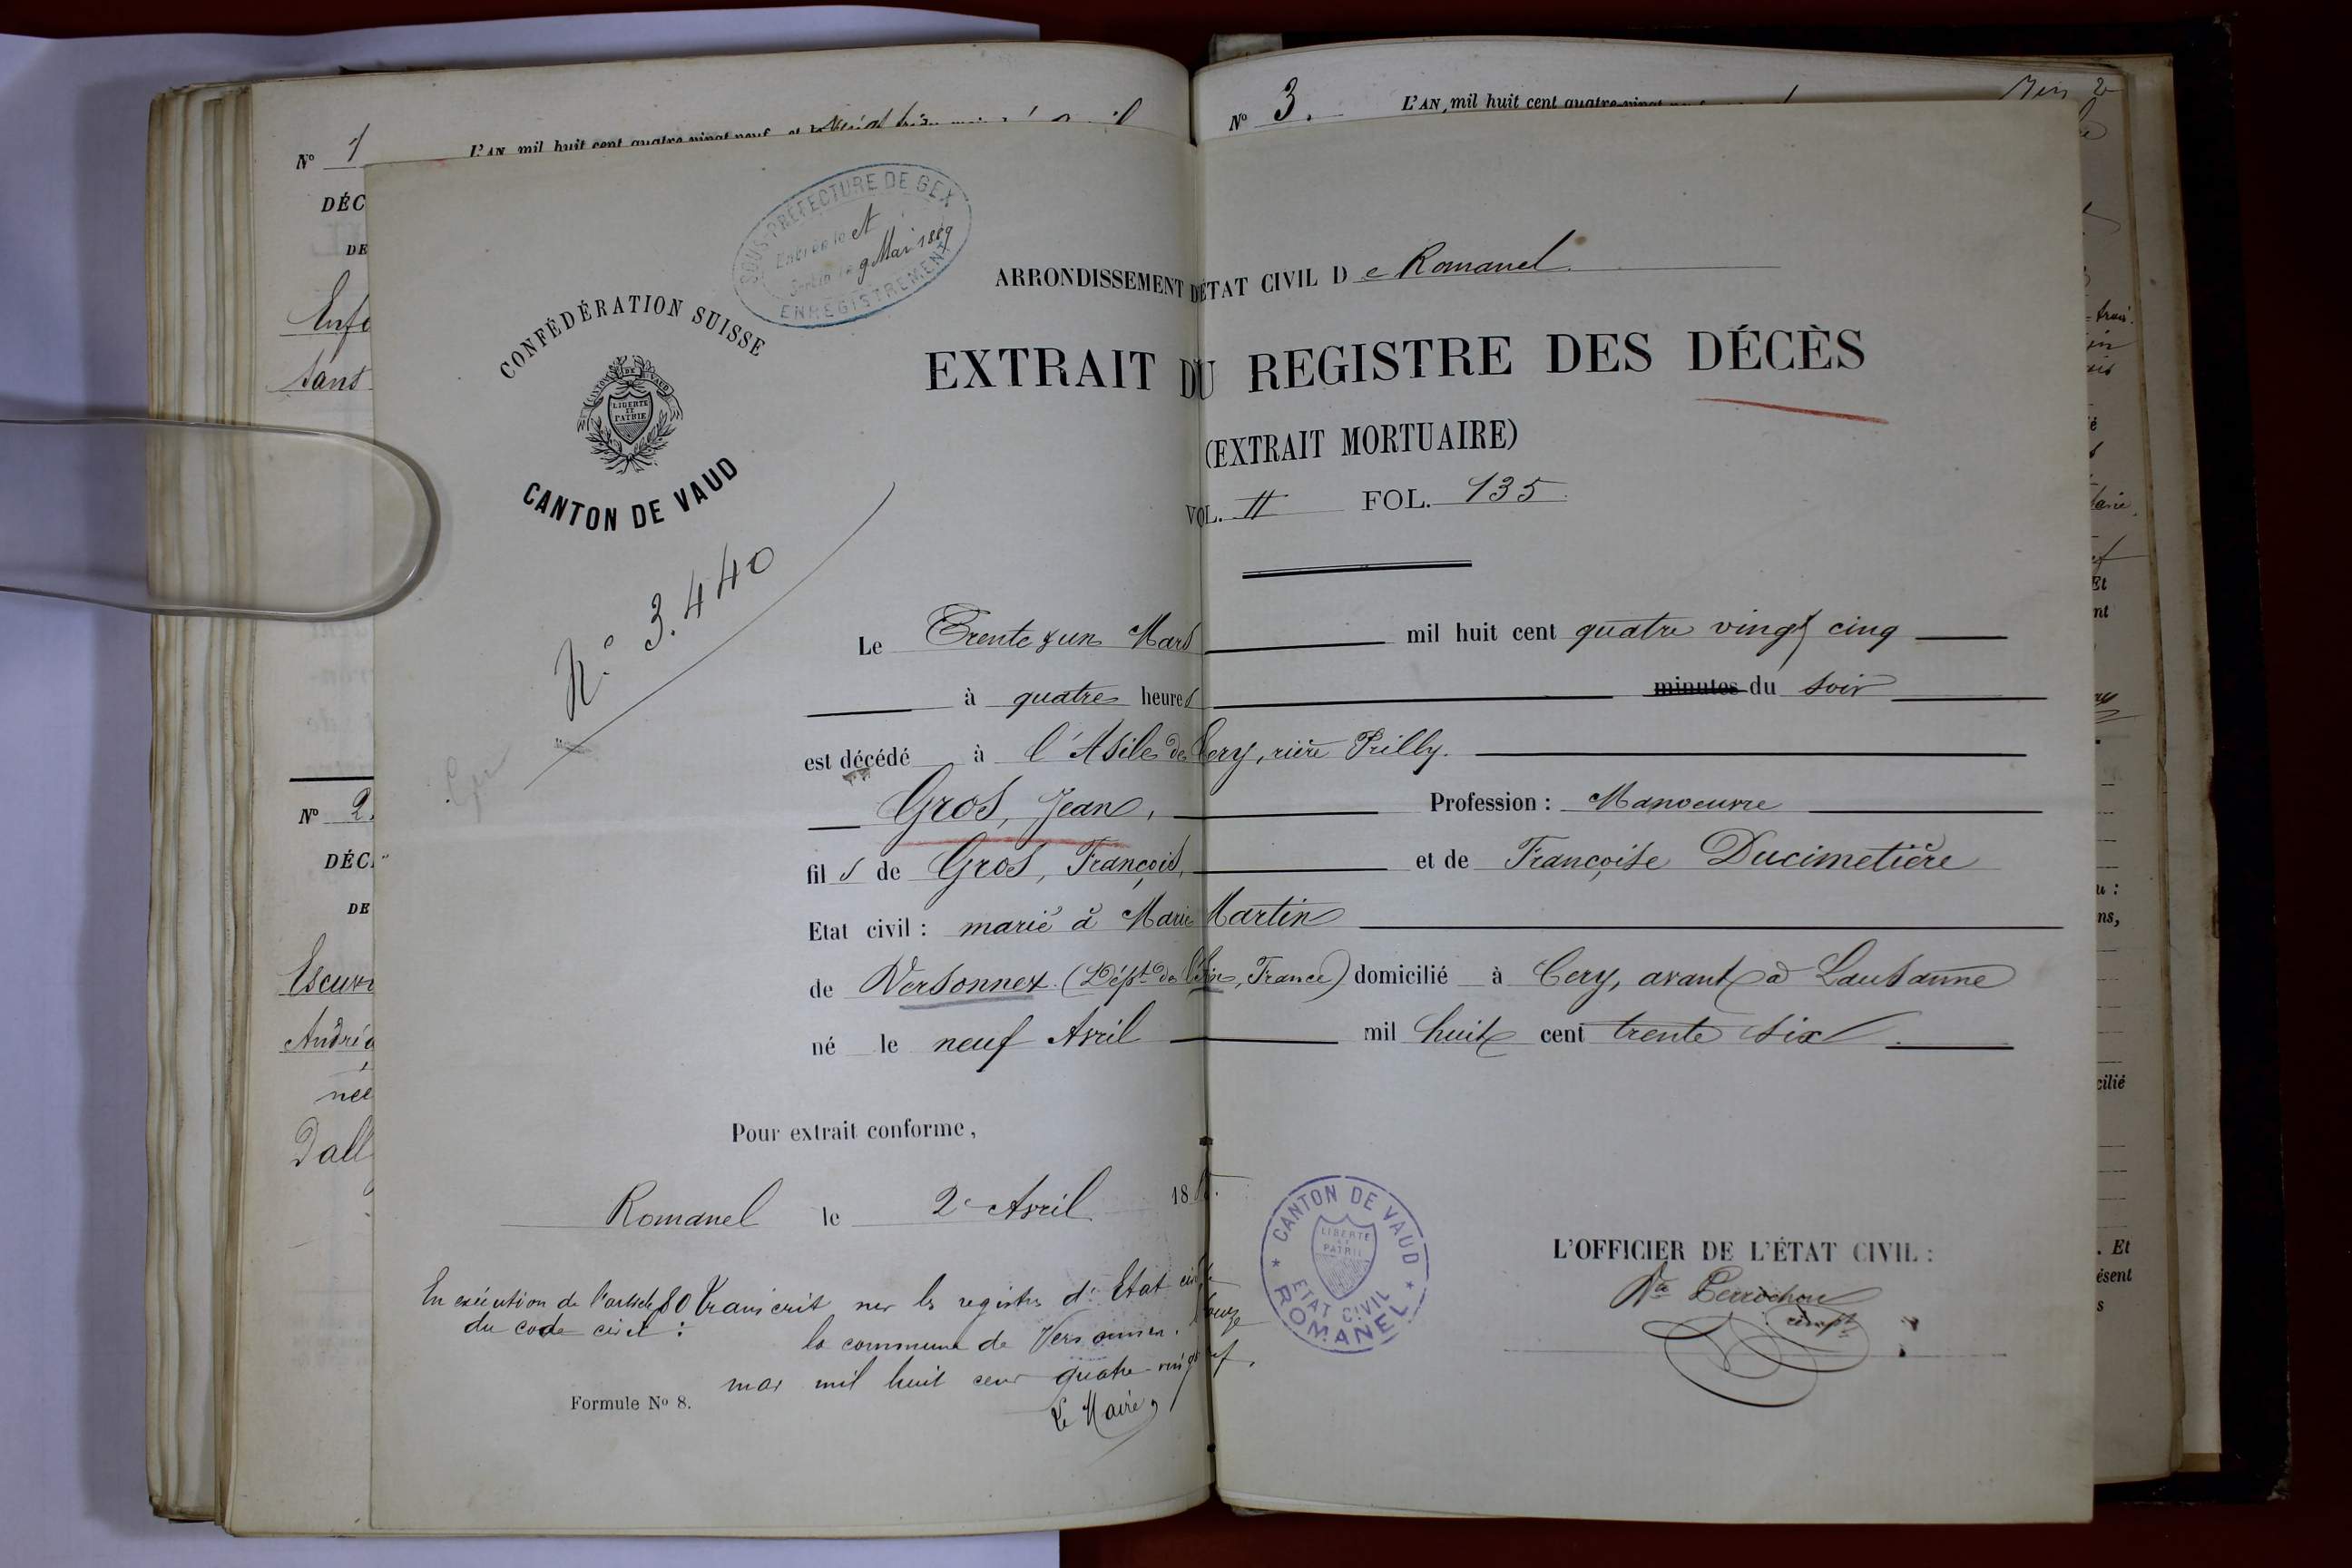 Nº 1
L'AN, mil huit cent quatre-vingt neuf
DÉC
DE
Enfa
sans
Nº 2.
DÉC
DE
Escuy
André
née
Dall
Nº 3. L'AN, mil huit cent quatre-vingt
SOUS-PRÉFECTURE DE GEX
et
9 Mai 1889
ENREGISTREMENT
CONFÉDÉRATION SUISSE
CANTON DE VAUD
LIBERTÉ
ET
PATRIE
CANTON DE VAUD
N.º 3.440
ARRONDISSEMENT D'ÉTAT CIVIL De Romanel
EXTRAIT DU REGISTRE DES DÉCÈS
(EXTRAIT MORTUAIRE)
VOL. II FOL. 135
Le Trente & un Mars mil huit cent quatre vingt cinq
à quatre heures minutes du soir
est décédé à l'Asile de Cery, rière Prilly.
Gros, Jean, Profession : Manoeuvre
fils de Gros, François, et de Françoise Ducimetière
Etat civil : marié à Marie Martin
de Versonnex (Dépt de l'Ain, France) domicilié à Cery, avant à Lausanne
né le neuf Avril mil huit cent trente six.
Pour extrait conforme,
Romanel le 2 Avril 18
CANTON DE VAUD
LIBERTÉ
ET
PATRIE
ETAT CIVIL
ROMANEL
L'OFFICIER DE L'ÉTAT CIVIL :
Perrochon
En exécution de l'article 80 Transcrit sur les registres d'Etat civil
du code civil : la commune de Versonnex,
mai mil huit cent quatre-vingt
Le Maire,
Formule Nº 8.